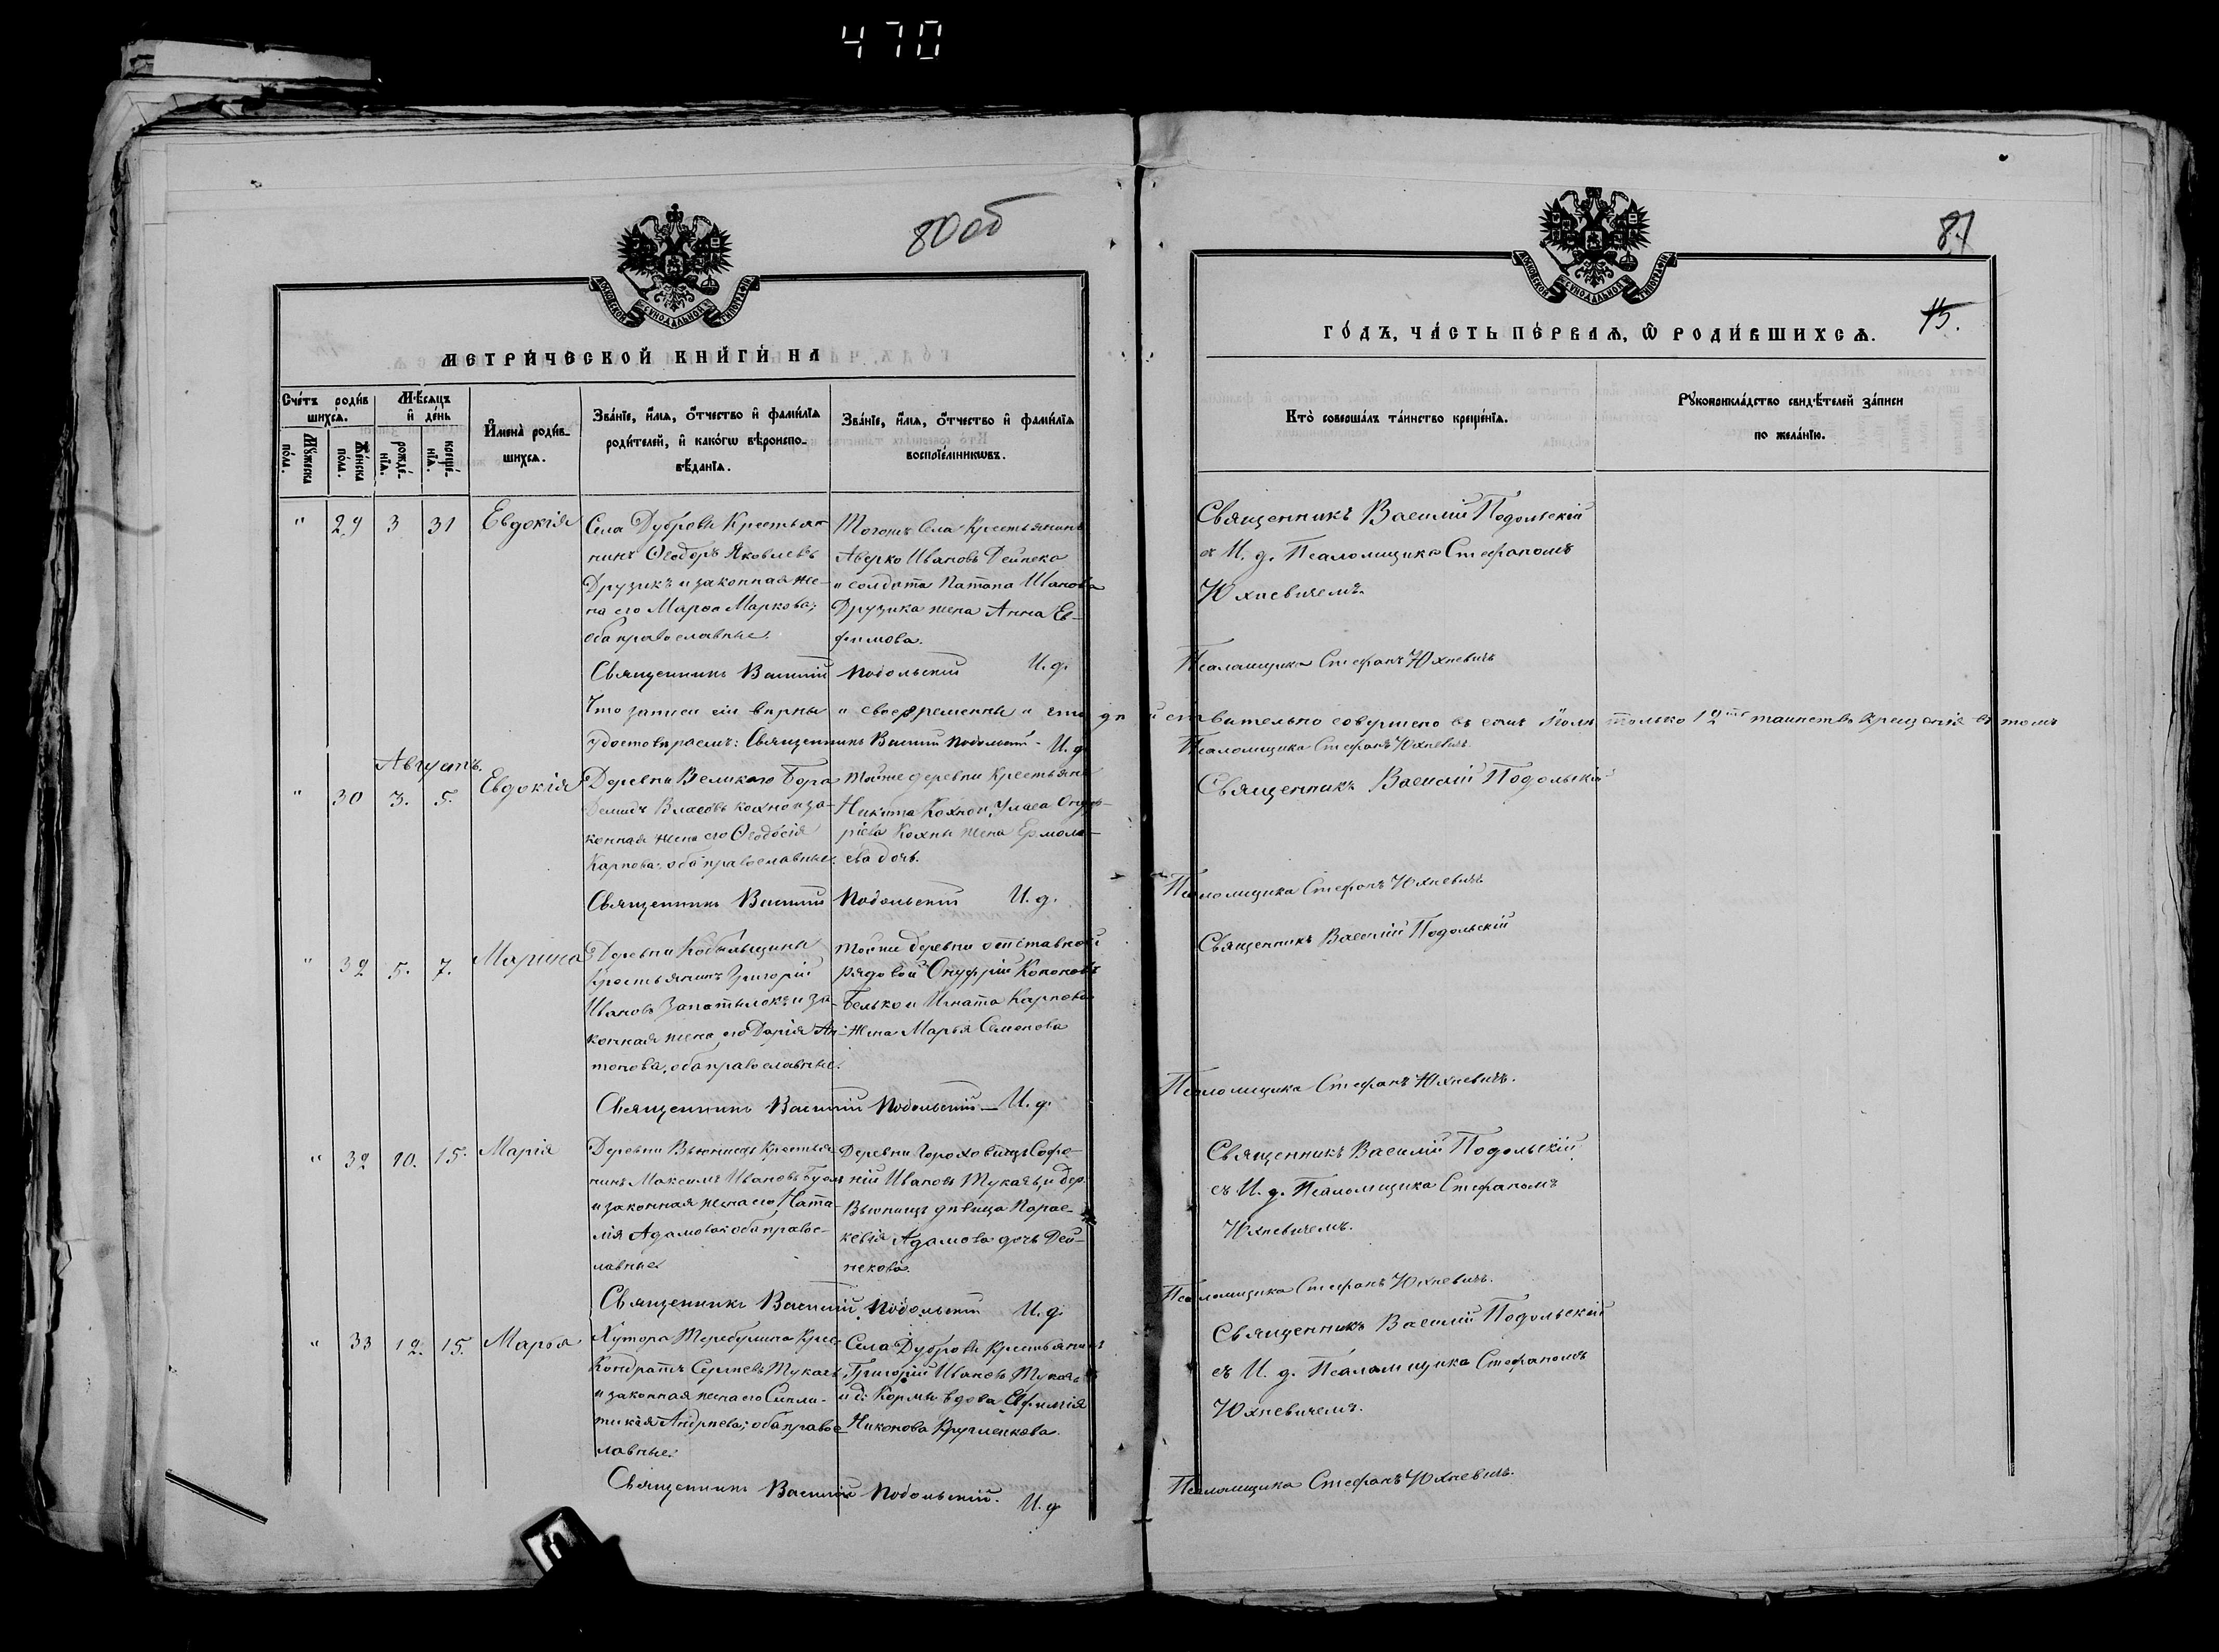 470
80 об
МЕТРИЧЕСКОЙ КНИГИ НА
Счетъ родив
шихся.
Мужеска
пола.
Женска
пола.
Мѣсяцъ
и день
рожде-
нія.
креще-
нія.
Имена родив-
шихся.
Званіе, имя, отчество и фамилія
родителей, и какого вѣроиспо-
вѣданія.
Званіе, имя, отчество и фамилія
воспріемниковъ.
" 29 3 31 Евдокія
Села Дубровы Крестья
нинъ Ѳеодоръ Яковлевъ
Друзикъ и законная же-
на его Марѳа Маркова;
оба православные.
Тогожъ Села Крестьянинъ
Аверко Ивановъ Дейнеко
и солдата Патапа Иванова
Друзика жена Анна Ев-
фимова.
Священникъ Василій Подольскій И. д.
Что записи сіи вѣрны и своевременны и что
удостовѣряемъ: Священникъ Василій Подольскій. И. д.
Августъ.
" 30 3. 5. Евдокія
Деревни Великаго Бора
Демидъ Власовъ Кохно и за-
конная жена его Ѳеодосія
Карпова, оба православные.
Тойже деревни Крестьян
Никита Кохно и Уласа Онуф-
ріева Кохны жена Ермола-
ева дочь.
Священникъ Василій Подольскій И. д.
" 32 5. 7. Марина
Деревни Кобыльщины
Крестьянинъ Григорій
Ивановъ Запотылокъ и за-
конная жена его Дарія Ан-
тонова, оба православные.
Тойже деревни отставной
рядовой Онуфрій Кононовъ
Белько и Игната Карпова
жена Марья Семенова
Священникъ Василій Подольскій – И. д.
" 32 10. 15. Марія
Деревни Вьюнищъ Крестья
нинъ Максимъ Ивановъ
и законная жена его Ната-
лія Адамова; оба правос-
лавные.
Деревни Гороховищъ Софо-
ній Ивановъ Тукачъ, и дер.
Вьюнищъ дѣвица Парас-
кевія Адамова дочь Дей-
некова.
Священникъ Василій Подольскій И. д.
" 33 12. 15. Марѳа
Хутора Теребулина Крес
Кондратъ Сергѣевъ Тукачъ,
и законная жена его Сикли-
тикія Андреева; оба правос
лавные.
Села Дубровы Крестьянинъ
Григорій Ивановъ Тукачъ
и д. Кормы вдова Евфимія
Никонова Кругленкова.
Священникъ Василій Подольскій. И. д
81
15.
ГОДЪ, ЧАСТЬ ПЕРВАЯ, Ѿ РОДИВШИХСЯ.
Кто совершалъ таинство крещенія.
Рукоприкладство свидѣтелей записи
по желанію.
Священникъ Василій Подольскій
съ И. д. Псаломщика Стефаномъ
Юхневичемъ.
Псаломщика Стефанъ Юхневичъ
дѣйствительно совершено въ семъ Іюлѣ только 12ть таинствъ крещенія въ томъ
Псаломщика Стефанъ Юхневичъ.
Священникъ Василій Подольскій
Псаломщика Стефанъ Юхневичъ
Священникъ Василій Подольскій
Псаломщика Стефанъ Юхневичъ.
Священникъ Василій Подольскій
съ И. д. Псаломщика Стефаномъ
Юхневичемъ.
Псаломщика Стефанъ Юхневичъ.
Священникъ Василій Подольскій
съ И. д. Псаломщика Стефаномъ
Юхневичемъ.
Псаломщика Стефанъ Юхневичъ.